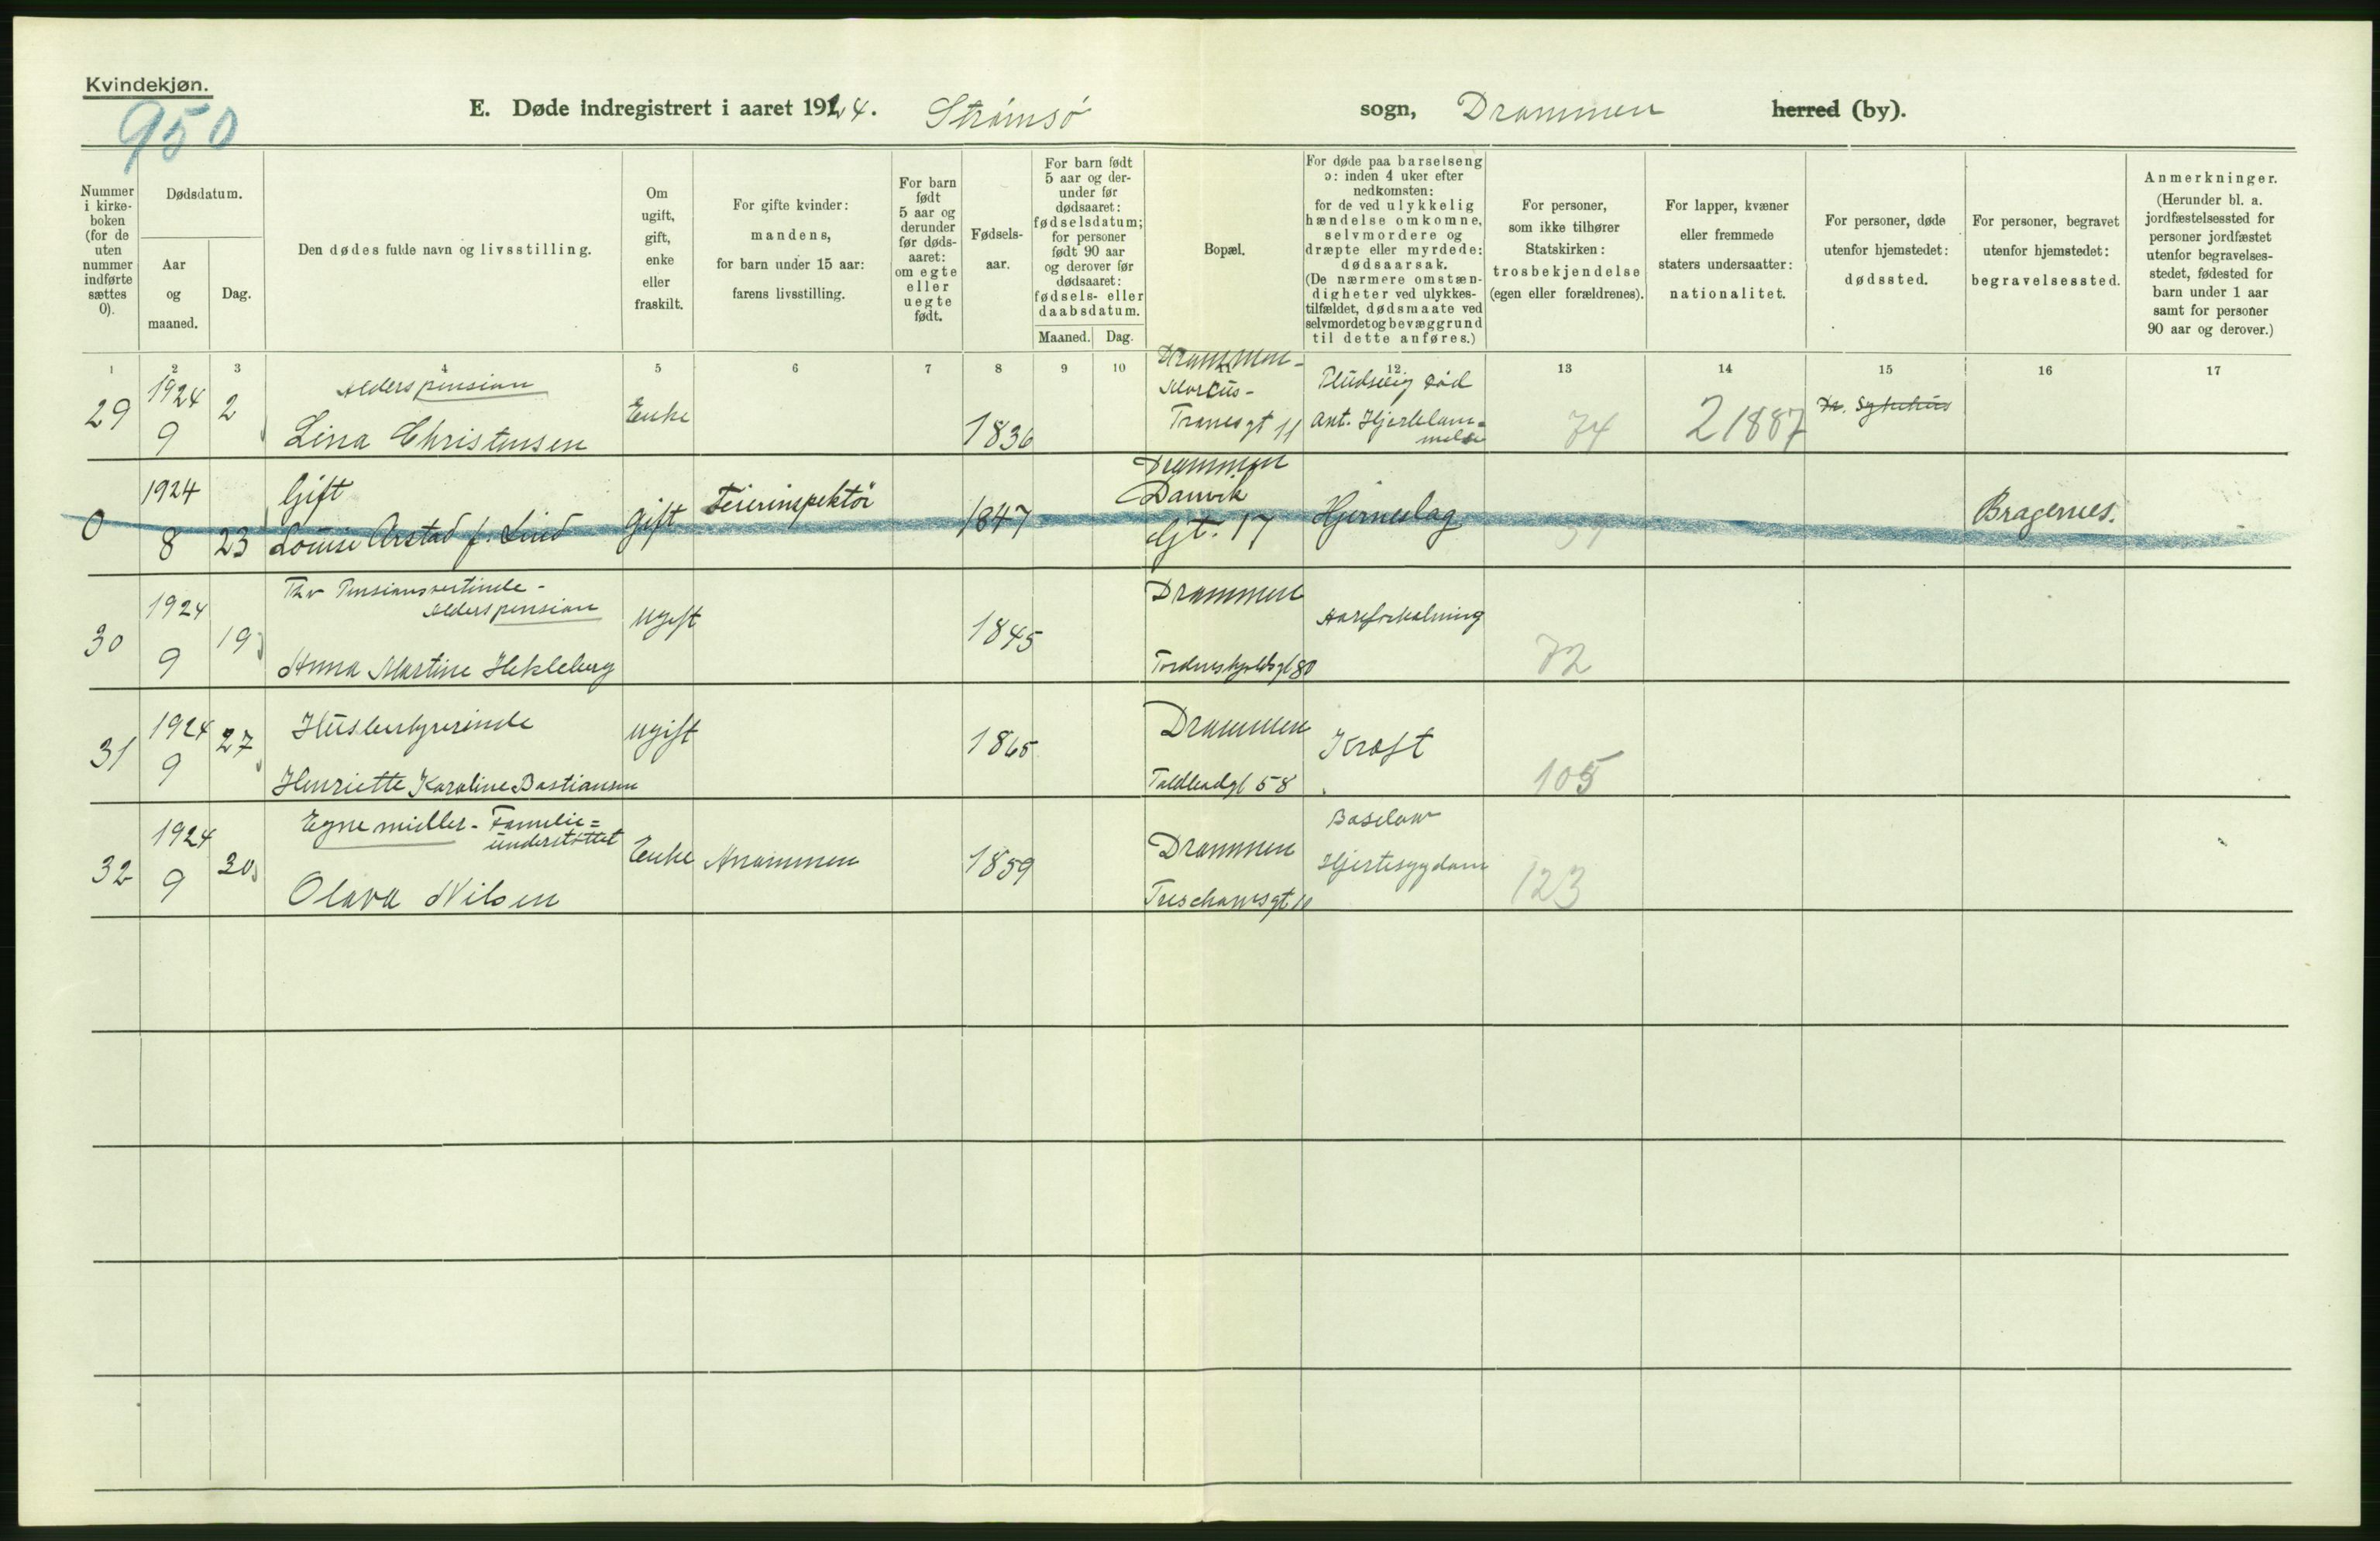 Kvindekjøn.
950
E. Døde indregistrert i aaret 1924. Strømsø sogn, Drammen herred (by).
Nummer i kirke-boken (for de uten nummer indførte sættes 0).
Dødsdatum.
Aar og maaned.
Dag.
Den dødes fulde navn og livsstilling.
Om ugift, gift, enke eller fraskilt.
For gifte kvinder: mandens, for barn under 15 aar: farens livsstilling.
For barn født 5 aar og derunder før døds-aaret: om egte eller uegte født.
Fødsels-aar.
For barn født 5 aar og der-under før dødsaaret: fødselsdatum; for personer født 90 aar og derover før dødsaaret: fødsels- eller daabsdatum.
Maaned. Dag.
Bopæl.
For døde paa barselseng ɔ: inden 4 uker efter nedkomsten: for de ved ulykkelig hændelse omkomne, selvmordere og dræpte eller myrdede: dødsaarsak. (De nærmere omstæn-digheter ved ulykkes-tilfældet, dødsmaate ved selvmordet og bevæggrund til dette anføres.)
For personer, som ikke tilhører Statskirken: trosbekjendelse (egen eller forældrenes).
For lapper, kvæner eller fremmede staters undersaatter: nationalitet.
For personer, døde utenfor hjemstedet: dødssted.
For personer, begravet utenfor hjemstedet: begravelsessted.
Anmerkninger. (Herunder bl. a. jordfæstelsessted for personer jordfæstet utenfor begravelses-stedet, fødested for barn under 1 aar samt for personer 90 aar og derover.)
1 2 3 4 5 6 7 8 9 10 12 13 14 15 16 17
29 1924 9 2 Alderspension
Lina Christensen Enke 1836 Drammen - Marcus - Tranesgt 11 Pludselig død Ant. Hjertelam=melse 74 21887 Dr. Sykehus
0 1924 8 23 Gift
Louise Arstad f. Lind Gift Feierinspektör 1847 Drammen Danvik Gt. 17 Hjerneslag Bragernes.
30 1924 9 19 Alderspension
Anna Martine Hekleberg ugift 1845 Drammen Tordenskjoldsgt 80 Aareforkalkning 72
31 1924 9 27 Husbestyrerinde
Henriette Karoline Bastiansen ugift 1865 Drammen Toldbodgt 58 Kræft 105
32 1924 9 30 Egne midler - Familie=understøttet
Olava Nilsen Enke 1859 Drammen Treschowsgt 10 Basedow Hjertesygdom 123